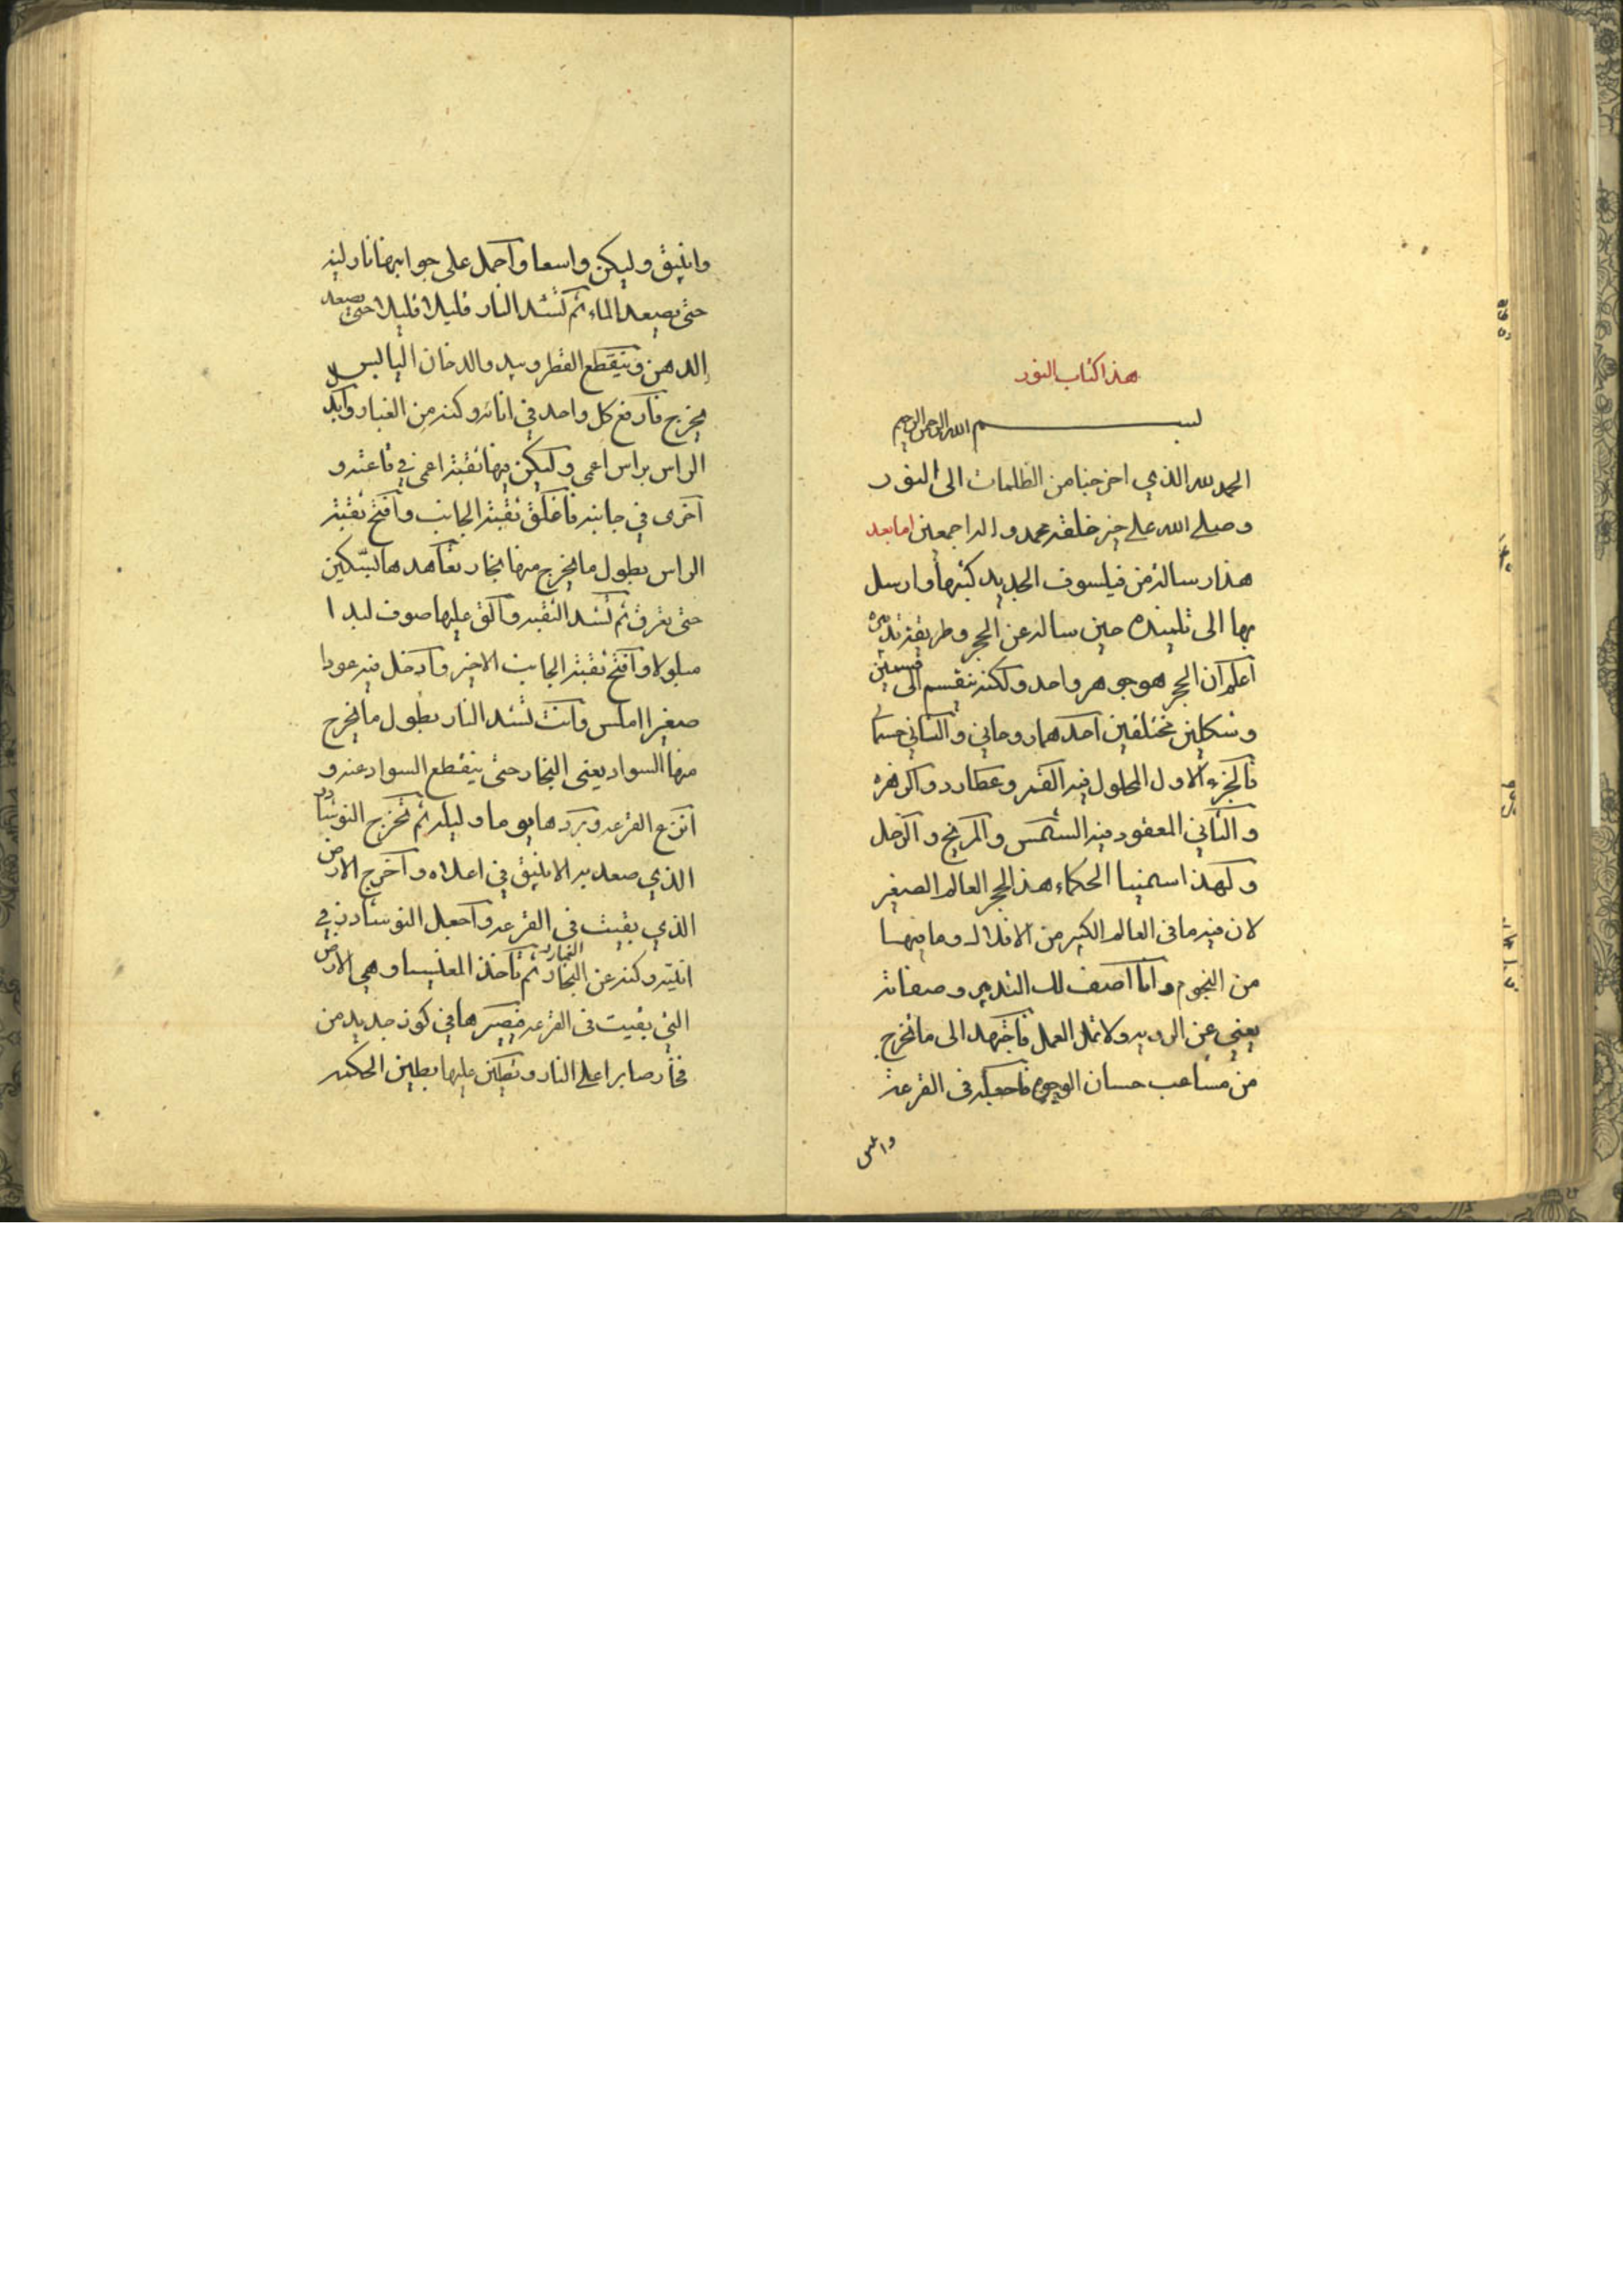 هذا كتاب النور
بسم الله الرحمن الرحيم
الحمد لله الذي اخرجنا من الظلمات الى النور
وصلى الله على خير خلقه محمد واله اجمعين اما بعد
هذا رسالة من فيلسوف الجديد كتبها وارسل
بها الى تلميذه حين ساله عن الحجر وطريقة تدبيره
اعلم ان الحجر هو جوهر واحد ولكنه ينقسم الى قسمين
وشكلين مختلفين احدهما روحاني والثاني جسماني
فالجزء الاول المحلول فيه القمر وعطارد والزهره
والثاني المعقود فيه الشمس والمريخ والزحل
ولهذا اسمينا الحكماء هذا الحجر العالم الصغير
لان فيه ما في العالم الكبير من الافلاك وما فيها
من النجوم وانا اصف لك التدبير وصفاته
يغني عن الرويه ولا تمل العمل فاجتهد الى ما تخرج
من حسان الوجوه فاجعله في القرعة
وانبيق وليكن واسعا واحمل على جوانبها نار لينه
حتى يصعد الماء ثم تشد النار قليلا قليلا حتى يصعد
الدهن وينقطع القطر ويبدو الدخان اليابس
يخرج فارفع كل واحد في انائه وكنه من الغبار وابدل
الراس براس اعمى وليكن فيها ثقبة اعمى في قاعته و
اخرى في جانبه فاغلق ثقبة الجانب وافتح ثقبة
الراس بطول ما يخرج منها بخار تعاهدها بسكين
حتى تعرف ثم تشد الثقبه والق عليها صوف لبدا
مبلولا وافتح ثقبة الجانب الاخير وادخل فيه عودا
صغيرا املس وانت تشد النار بطول ما يخرج
منها السواد يعني البخار حتى ينقطع السواد عنه و
انزع القرعه وبردها يوما وليله ثم تخرج النوشادر
الذي صعد به الانبيق في اعلاه واخرج الارض
الذي بقيت في القرعه واجعل النوشادر في
انيته وكنه عن البخار الغبار ثم تاخذ المغنيسيا وهي الارض
التي بقيت في القرعه فصيرها في كوز جديد من
فخار صابرا على النار وتطين عليها بطين الحكمه